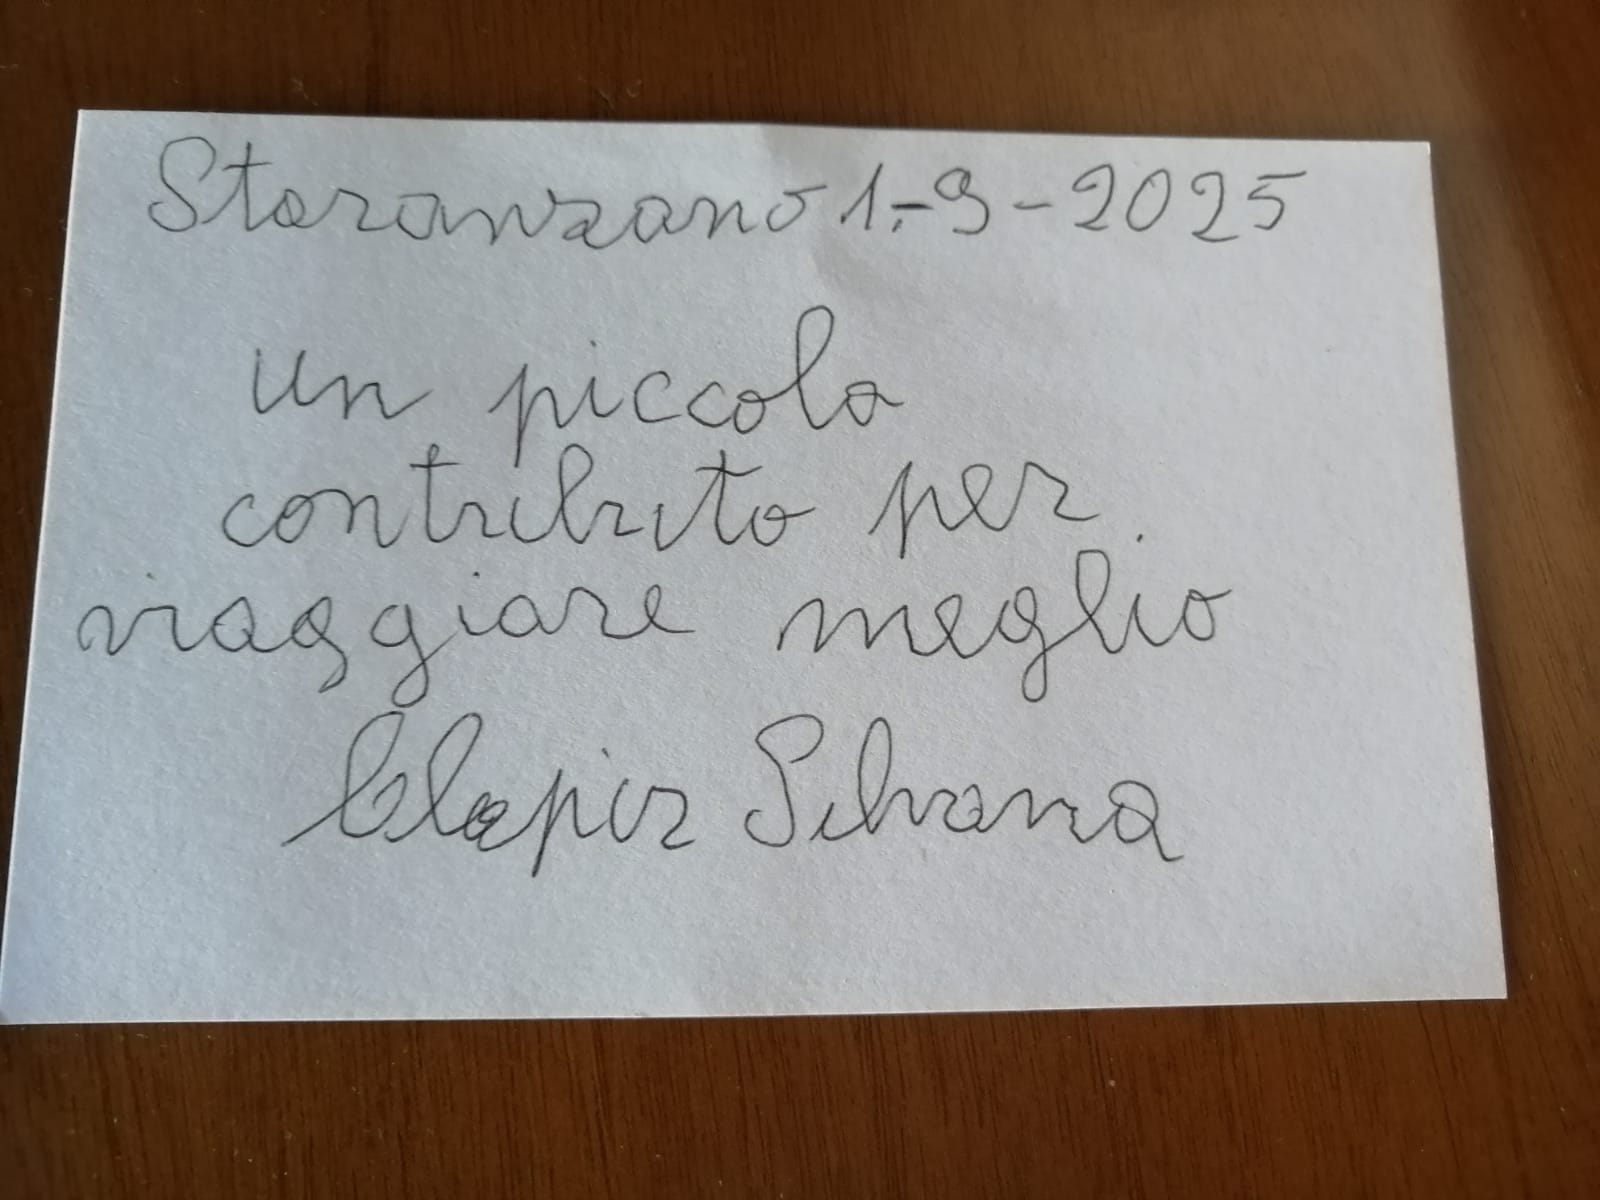 Staranzano 1.-9-2025
un piccolo
contributo per
viaggiare meglio
Clapiz Silvana